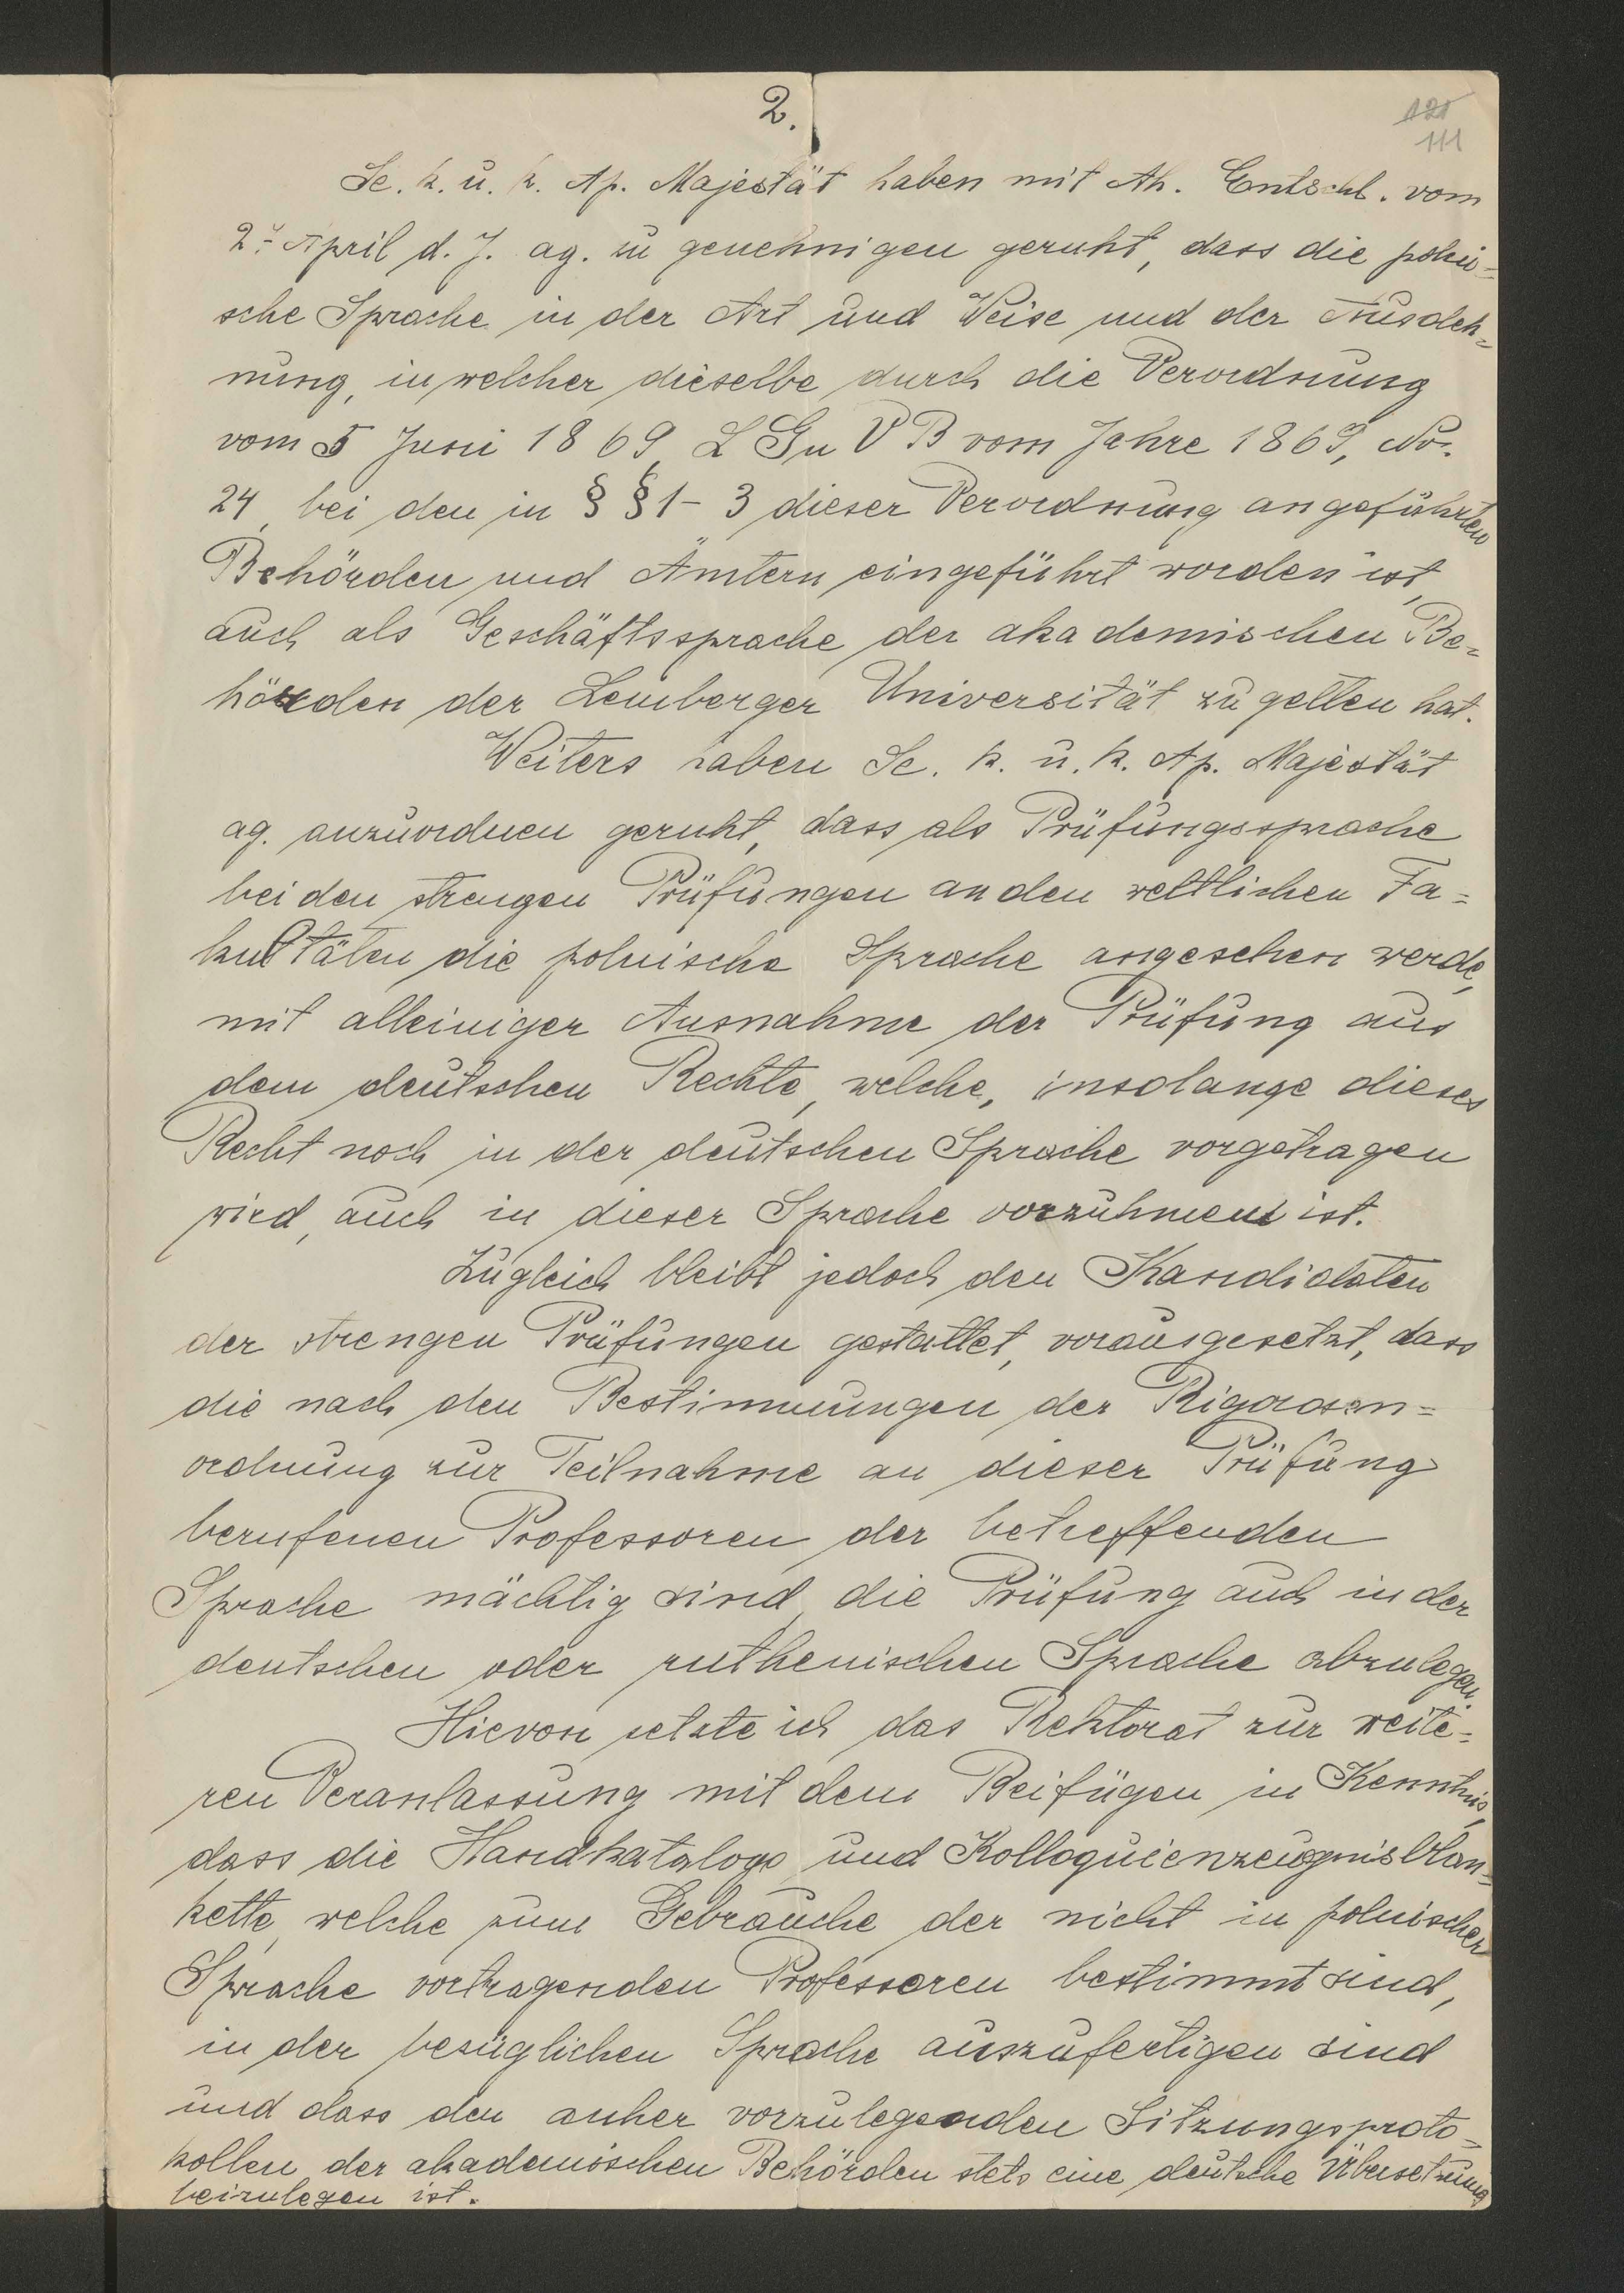 2.
121
111
Se. k. u. k. Ap. Majestät haben mit Ah. Entschl. vom
2. April d. J. ag. zu genehmigen geruht, dass die polni=
sche Sprache in der Art und Weise und der Ausdeh=
nung, in welcher dieselbe durch die Verordnung
vom 5 Juni 1869 L Gu V B vom Jahre 1869, No.
24, bei den in § § 1 - 3 dieser Verordnung angeführten
Behörden und Ämtern eingeführt worden ist,
auch als Geschäftssprache der akademischen Be=
hörden der Lemberger Universität zu gelten hat.
Weiters haben Se. k. u. k. Ap. Majestät
ag. anzuordnen geruht, dass als Prüfungssprache
bei den strengen Prüfungen an den weltlichen Fa=
kultäten die polnische Sprache angesehen werde,
mit alleiniger Ausnahme der Prüfung aus
dem deutschen Rechte, welche, insolange dieses
Recht noch in der deutschen Sprache vorgetragen
wird, auch in dieser Sprache vorzuhmen ist.
Zugleich bleibt jedoch den Kandidaten
der strengen Prüfungen gestattet, vorausgesetzt, dass
die nach den Bestimmungen der Rigorosen=
ordnung zur Teilnahme an dieser Prüfung
berufenen Professoren der betreffenden
Sprache mächtig sind, die Prüfung auch in der
deutschen oder ruthenischen Sprache abzulegen.
Hievon setzte ich das Rektorat zur weite=
ren Veranlassung mit dem Beifügen in Kenntnis,
dass die Handkataloge und Kolloquienzeugnisblan=
kette, welche zum Gebrauche der nicht in polnischer
Sprache vortragenden Professoren bestimmt sind,
in der bezüglichen Sprache auszufertigen sind
und dass den anher vorzulegenden Sitzungsproto=
kollen der akademischen Behörden stets eine deutsche Übersetzung
beizulegen ist.